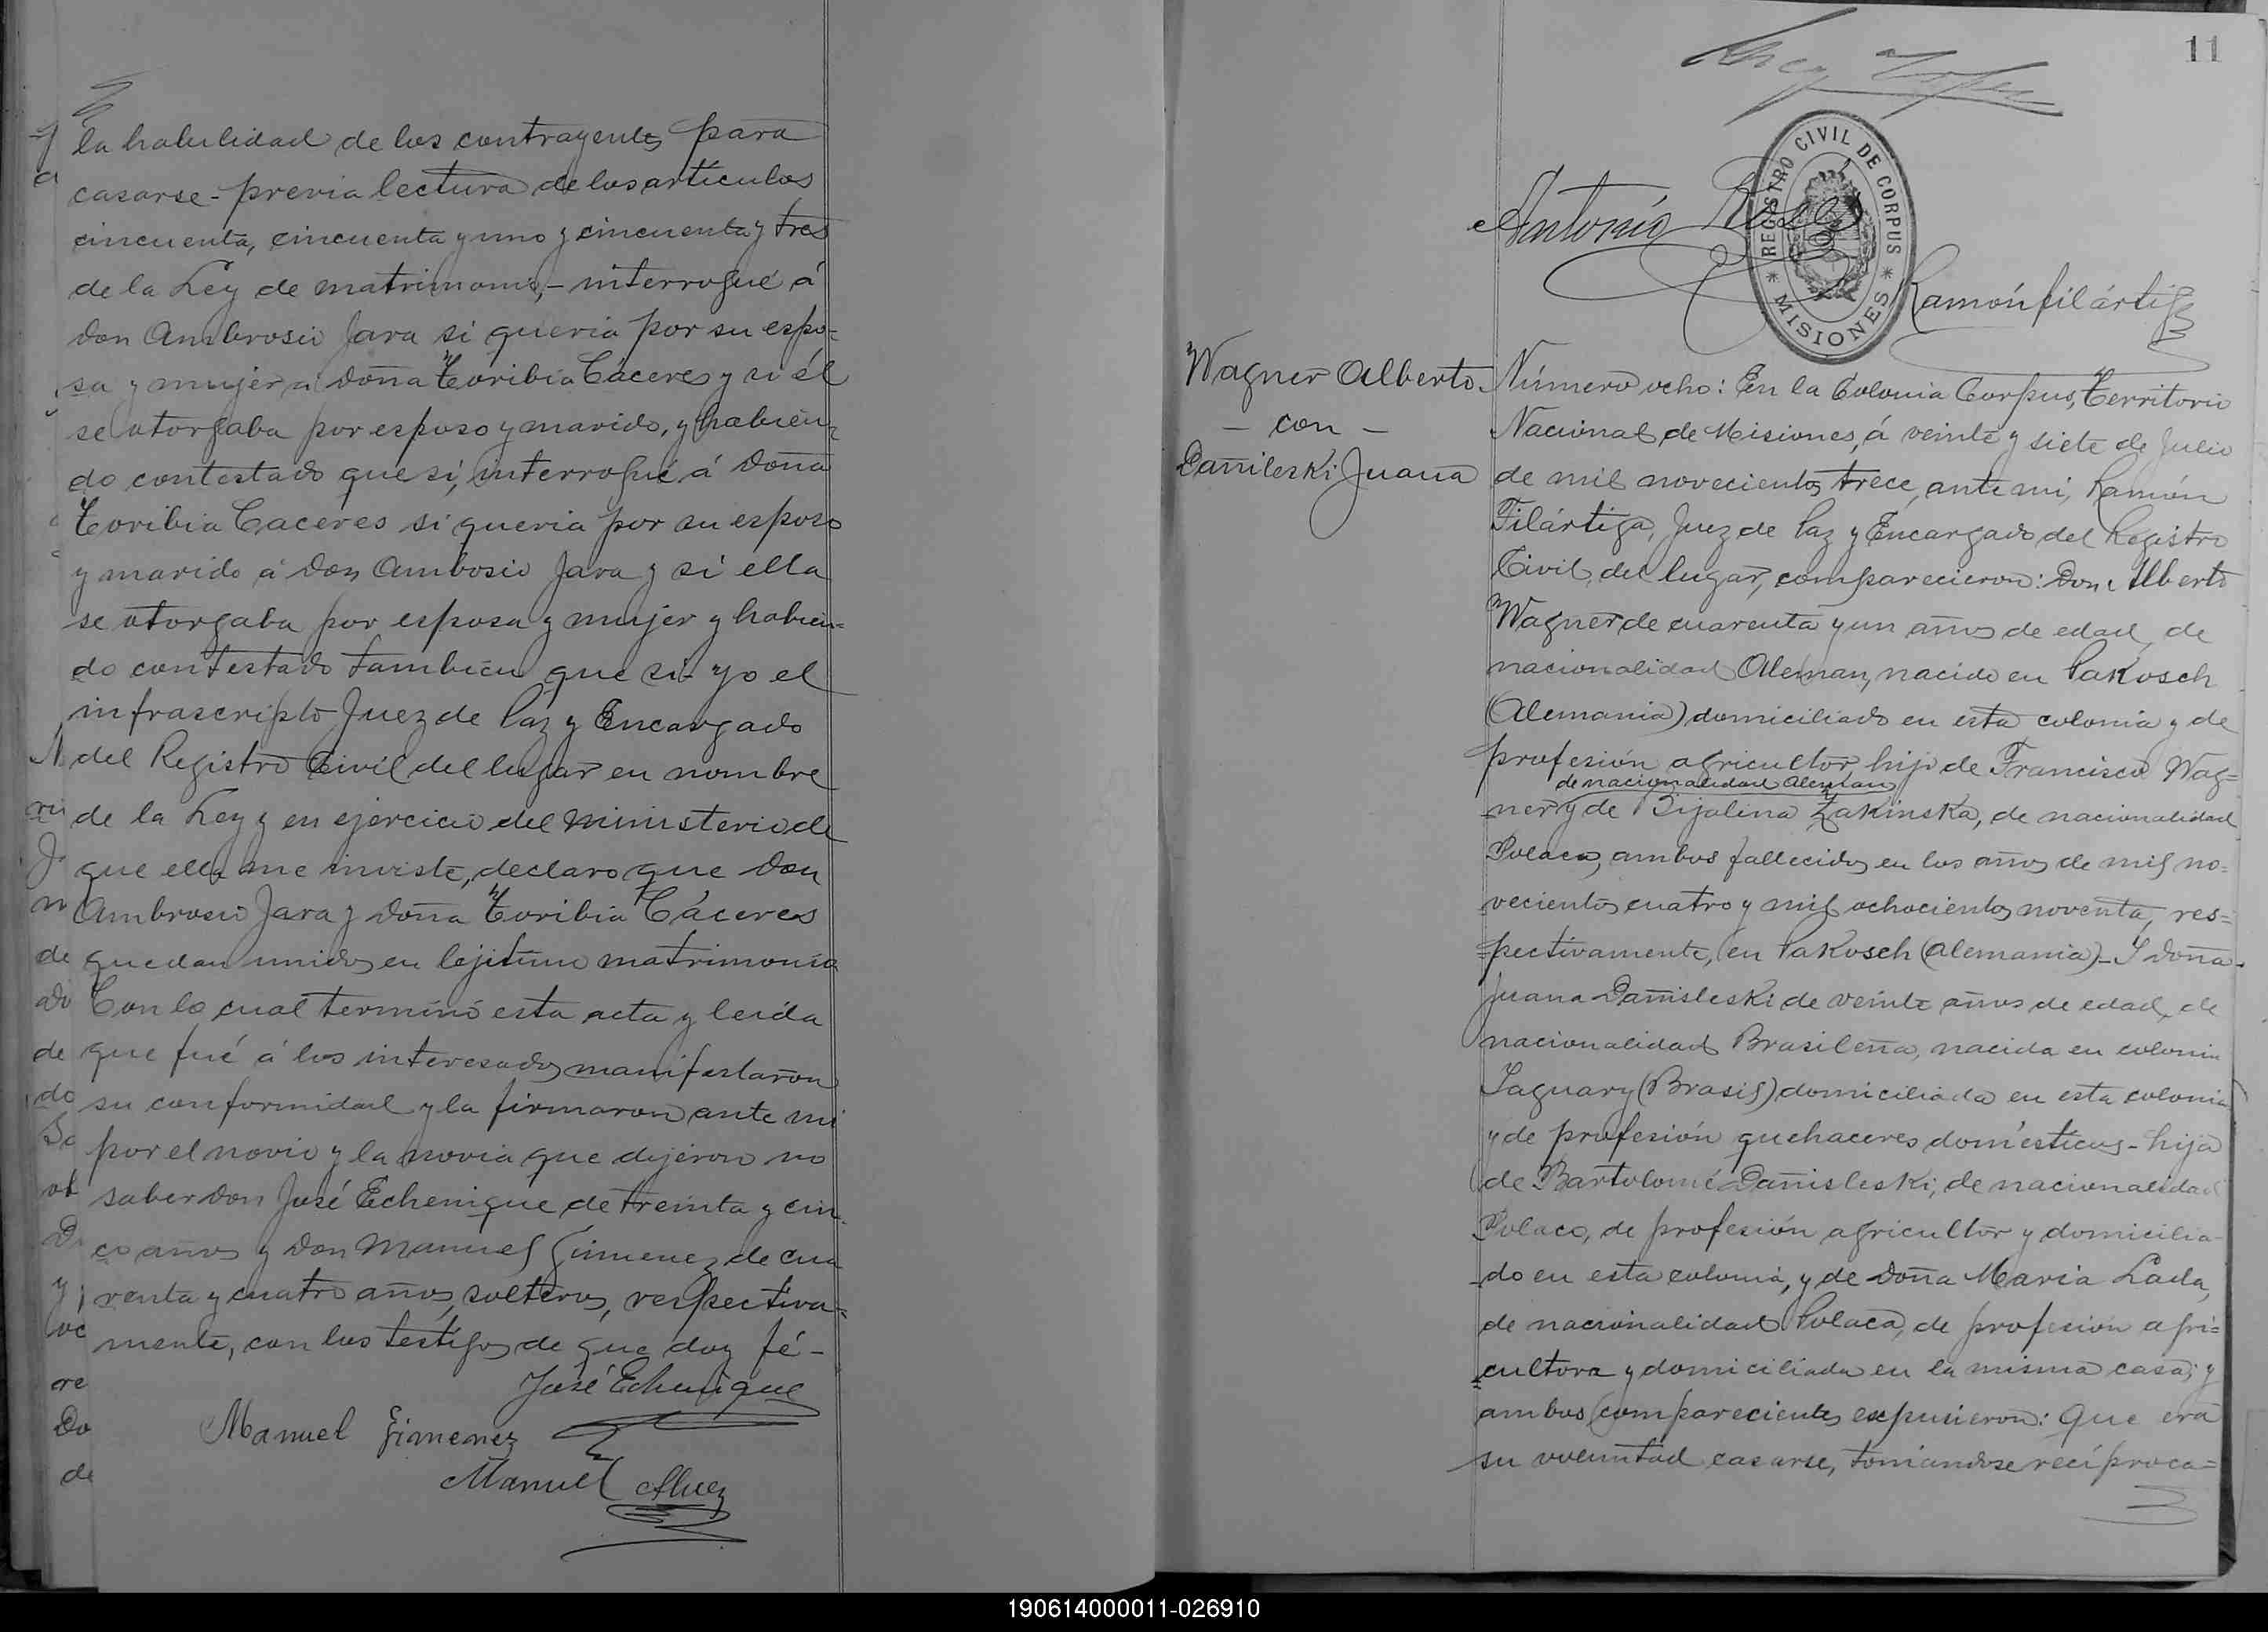 la habilidad de los contrayentes para
casarse - previa lectura de los artículos
cincuenta, cincuenta y uno y cincuenta y tres
de la Ley de matrimonio, - interrogué á
don Ambrosio Jara si queria por su espo-
sa y mujer á doña Toribia Cáceres y si él
se otorgaba por esposo y marido, y habien-
do contestado que si, interrogué á doña
Toribia Caceres si queria por su esposo
y marido á don Ambosio Jara y si ella
se otorgaba por esposa y mujer y habien-
do contestado tambien que si - yo el
infrascripto Juez de Paz y Encargado
del Registro Civil del lugar en nombre
de la Ley y en ejercicio del ministerio de
que ella me inviste, declaro que don
Ambrosio Jara y doña Toribia Cáceres
quedan unidos en lejitimo matrimonio
Con lo cual terminó esta acta y leida
que fué á los interesados manifestaron
su conformidad y la firmaron ante mi
por el novio y la novia que dijeron no
saber don José Echenique de treinta y cin-
co años y don Manuel Gimenez de cua
renta y cuatro años, solteros, respectiva-
mente, con los testigos de que doy fé -
José Echenique
Manuel Gimenez
Manuel
11
REGISTRO CIVIL DE CORPUS
* MISIONES *
Antonio
Ramón filártiga
Wagner Alberto
- con -
Dañileski Juana
Número ocho: En la Colonia Corpus, Territorio
Nacional de Misiones, á veinte y siete de Julio
de mil novecientos trece, ante mi, Ramón
Filártiga, Juez de Paz y Encargado del Registro
Civil del lugar, comparecieron: Don Alberto
Wagner de cuarenta y un años de edad, de
nacionalidad Aleman, nacido en Pakosch
(Alemania) domiciliado en esta colonia y de
profesión agricultor hijo de Francisco Wag-
de nacionalidad Aleman
ner y de Bijalina Zakinska, de nacionalidad
Polaca, ambos fallecidos en los años de mil no-
vecientos cuatro y mil ochocientos noventa, res-
pectivamente, en Pakosch (Alemania) - Y doña
Juana Dañisleski de veinte años de edad, de
nacionalidad Brasileña, nacida en colonia
Jaguary (Brasil) domiciliada en esta colonia
y de profesión quehaceres domésticos - hija
de Bartolomé Dañisleski, de nacionalidad
Polaco, de profesión agricultor y domicilia-
do en esta colonia, y de doña Maria Lada,
de nacionalidad Polaca, de profesión agri-
cultora y domiciliada en la misma casa; y
ambos comparecientes expusieron: Que era
su voluntad casarse, tomandose recíproca-
190614000011-026910